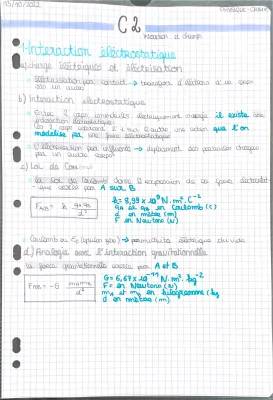 15/10/2022
Physique-Chimie
C2
Interaction et champ
1-Interaction électrostatique
a) charge électriques et électrisation
électrisation par contact → transfert d'électrons d'un corps
à un autre
b) Interaction électrostatique
Entre 2 corps immobiles électriquement chargés il existe une
interaction électrostatique
Les 2 corps exercent l'1 sur l'autre une action que l'on
modélise par une force électrostatique
L'électrisation par influence → déplacement des particules chargées
par un autre corps
c) Loi de Coulomb
La loi de Coulomb donne l'expression de la force électrostati-
que exercée par A sur B
F A/B = k qA qB / d²
k = 8,99 x 10⁹ N.m².C⁻²
qA et qB en Coulomb (C)
d en mètre (m)
F en Newton (N)
Coulomb → permittivité électrique du vide
d) Analogie avec l'interaction gravitationnelle
La force gravitationnelle exercée par A et B
F A/B = -G mA mB / d²
G = 6,67 x 10⁻¹¹ N.m².kg⁻²
F en Newtons (N)
mA et mB en kilogramme (kg)
d en mètre (m)